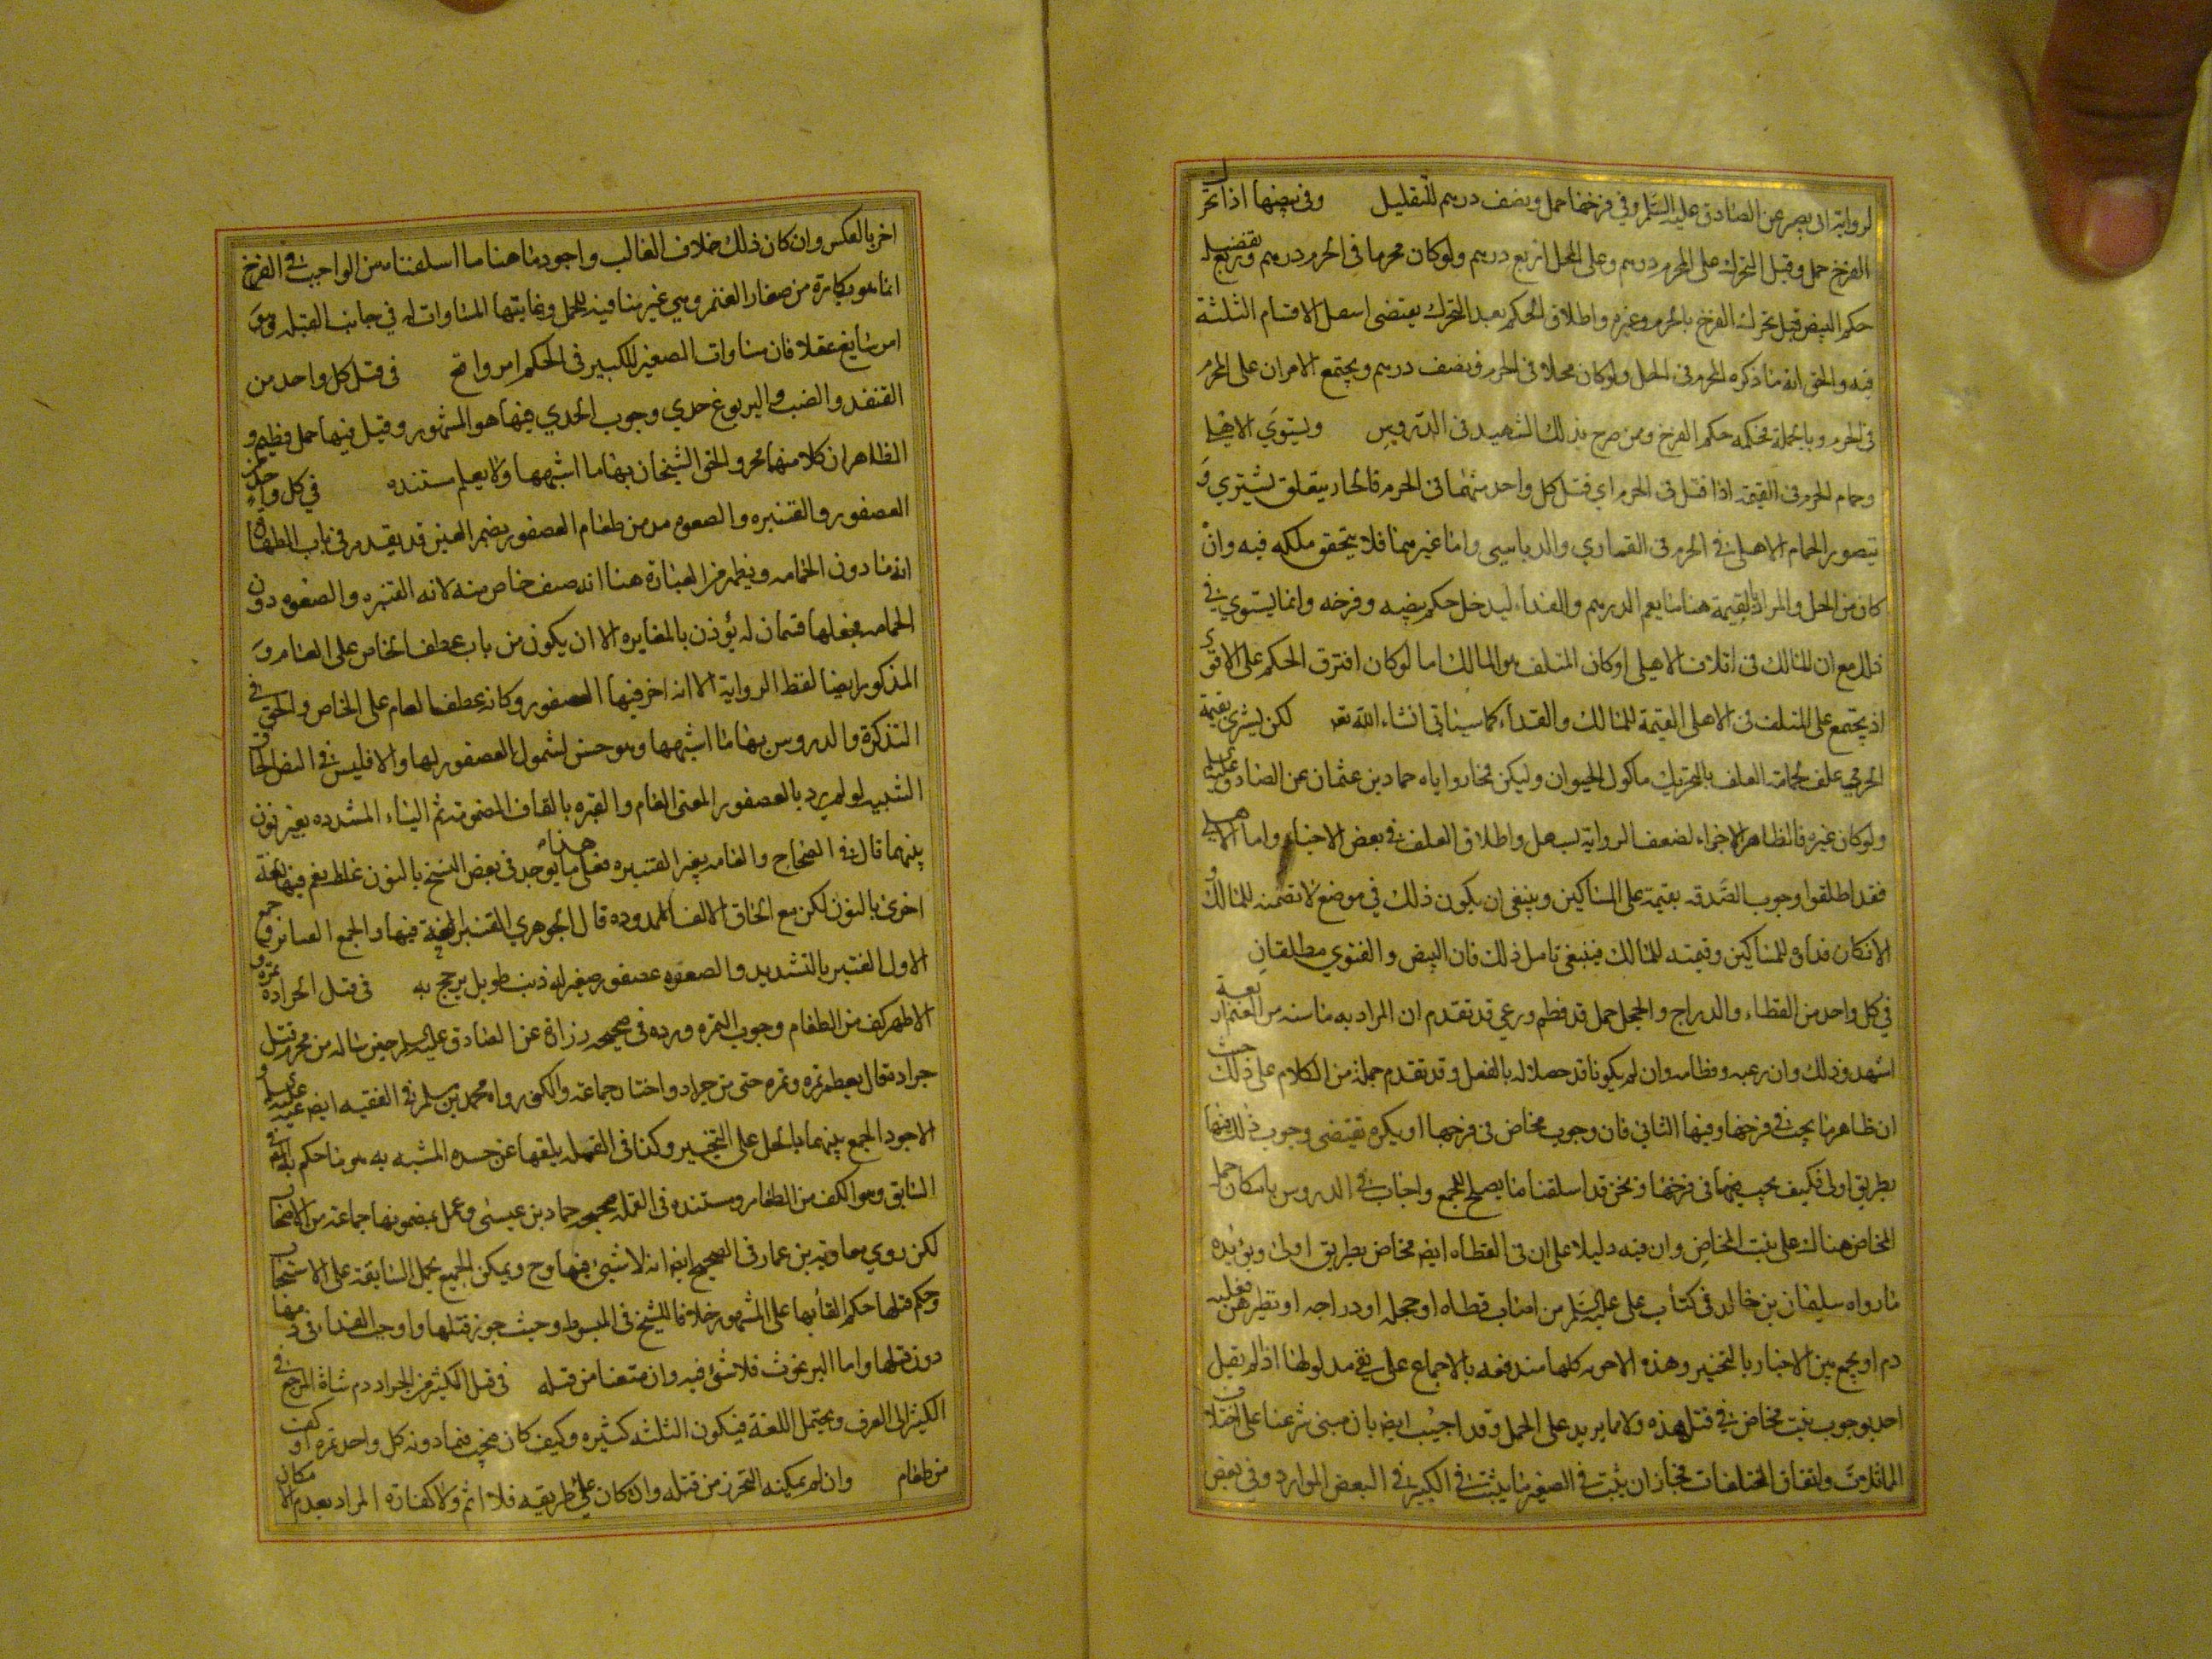 لرواية ابى بصير عن الصادق عليه السلم وفي فرخها حمل ونصف درهم للتقليل وفى بيضها اذا تحرك
الفرخ حمل وقبل التحرك على المحرم درهم وعلى المحل اربع درهم ولوكان محرما فى الحرم درهم وربع لـ
حكم البيض قبل تحرك الفرخ بالحرم وغيره واطلاق الحكم بعد التحرك يقتضى اسهل الاقسام الثلثة
فيه والحق انه ما ذكره المحرم فى الحل ولوكان محلا فى الحرم فنصف درهم ويجتمع الامران على المحرم
فى الحرم وبالجملة فحكمه حكم الفرخ وممن صرح بذلك الشهيد فى الدروس ويستوي الاهلى
وحمام الحرم فى القيمة اذا قتل فى الحرم اي قتل كل واحد منهما فى الحرم فالجار يتعلق بيستوي و
يتصور الحمام الاهلى فى الحرم فى القماري والدباسى واما غيرهما فلا يتحقق ملكه فيه وان
كان من الحل والمراد بالقيمة هنا ما يعم الدرهم والفداء ليدخل حكم بيضه وفرخه وانما يستوي فى
ذلك مع ان للمالك فى اتلاف الاهلى اوكان المتلف هو المالك اما لوكان افترق الحكم على الاقوى
اذ يجتمع على المتلف فى الاهلى القيمة للمالك والفداء كما سياتى انشاء الله تعه لكن يشترى بقيمة
الحرمي علف لحمامه العلف بالتحريك ماكول الحيوان وليكن قمحا رواياه حماد بن عثمان عن الصادق عليه السلم
ولوكان غيره فالظاهر الاجزاء لضعف الرواية واطلاق العلف فى بعض الاخبار واما الاهلى
فقد اطلقوا وجوب الصدقه بقيمة على المساكين وينبغى ان يكون ذلك فى موضع لا تضمنه للمالك و
الا فكان فداؤه للمساكين وقيمته للمالك فينبغى تامل ذلك فان البيض والفتوي مطلقان
في كل واحد من القطاء والدراج والحجل حمل قد فطم ورعي قد تقدم ان المراد به ما سنه من الغنم اربعة
اشهد وذلك وان رعيه وفطامه وان لم يكونا قد حصلا له بالفعل وقد تقدم جملة من الكلام على ذلك حيث
ان ظاهر ما يجب فى فرخها وفيها الثانى فان وجوب مخاض فى فرخها او بكره يقتضى وجوب ذلك فيها
بطريق اولى فكيف يجب فيها فى فرخها ونحن قد اسلفنا ما يصلح للجمع واجاب فى الدروس بامكان حمل
المخاض هناك على بنت المخاض وان فيه دليلا على ان فى القطاه ايضه مخاض بطريق اولى ويؤيده
ما رواه سليمان بن خالد فى كتاب على عليه السلم من اصاب قطاه او حجله او دراجه او نظيرهن فعليه
دم او يجمع بين الاخبار بالتخيير وهذه الاجوبه كلها مندفعه بالاجماع على نفي مدلولها اذ لم يقل
احد بوجوب بنت مخاض في قتل هذه ولا ما يزيد على الحمل وقد اجيب ايضه بان مبنى شرعنا على اختلاف
المتماثلات واتفاق المختلفات فجاز ان يثبت فى الصغير ما يثبت فى الكبير فى البعض الموارد وفي بعض
اخر بالعكس وان كان ذلك خلاف الغالب واجود ما هنا ما اسلفناه من الواجب فى الفرخ
انما هو بكارة من صغار الغنم وهي غير منافيه للحمل وغايتها المساوات له في جانب القتل وهو
امر شايع عقلا فان مساوات الصغير للكبير فى الحكم امر واقع فى قتل كل واحد من
القنفد والضب واليربوع جدي وجوب الجدي فيها هو المشهور وقيل فيها حمل فطيم و
الظاهر ان كلا منهما مجزو الحق الشيخان بها ما اشبهها ولا يعلم مستنده في كل واحد من
العصفور والقنبره والصعوه مد من طعام العصفور بضم العين قد تقدم فى باب المطهاره
انه ما دون الحمامه ويظهر من العبارة هنا انه صنف خاص منه لانه القنبره والصعوه دون
الحمامه فجعلها قسمان له يؤذن بالمغايره الا ان يكون من باب عطف الخاص على العام و
المذكور ايضا لفظ الرواية الا انه اخر فيها العصفور وكانه عطف العام على الخاص والحق فى
التذكرة والدروس بها ما اشبهها وهو حسن لشمول العصفور لها والا فليس فى النص الحاق
الشبيه لو لم يرد بالعصفور المعنى العام والقبره بالقاف المضمومة ثم الباء المشدده بغير نون
بينهما قال فى الصحاح والعامه يغير القنبره فعلى هذا ما يوجد فى بعض النسخ بالنون غلط نعم فيها لغة
اخرى بالنون لكن مع الحاق الالف الممدوده قال الجوهري القنبراء لغة فيها والجمع القنابر وجمع
الاول القنبر بالتشديد والصعوه عصفور صغير له ذنب طويل يرجح به فى قتل الجراده تمره و
الاظهر كف من الطعام وجوب التمره ورده فى صحيحه زرارة عن الصادق عليه السلم حين ساله من محرم قتل
جرادة قال يطعم تمره وتمره حتى من جراد واختاره جماعة والكف رواه محمد بن مسلم فى الفقيه ايضه عنه عليه السلم و
الاجود الجمع بينهما بالحمل على التخيير وكذا فى القمله يلقها عن جسده المشبه به هو ما حكم به فى
السابق وهو الكف من الطعام ومستنده فى القمله صحيحه حماد بن عيسى وعمل بمضمونها جماعة من الاصحاب
لكن روي معاويه بن عمار فى الصحيح ايضه انه لا شيئ فيها وح ويمكن الجميع بحمل السابقة على الاستحباب
وحكم قتلها حكم القاءها على المشهور خلافا للشيخ فى المبسوط وحيث جوز قتلها واوجب الفداء فى رميها
دون قتلها واما البرغوث فلا شئ فيه وان منعنا من قتله فى قتل الكثير من الجراد دم شاة المرجع فى
الكثير الى العرف ويحتمل اللغة فيكون الثلثه كثيره وكيف كان فيجب فيما دونه كل واحد تمره او كف
من طعام وان لم يمكنه التحرز من قتله وان كان على طريقه فلا اثم ولا كفارة المراد بعدم الامكان